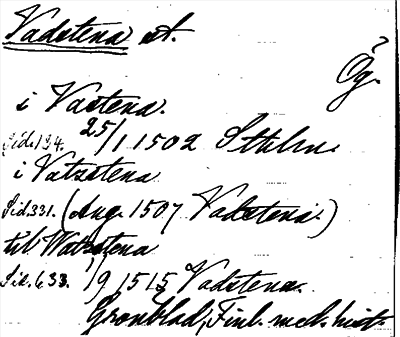 Vadstena st.
Ög.
i Vastena.
Sid. 194. 25/1 1502 Sthlm.
i Vatzstena
Sid. 331. (Aug. 1507 Vadstena.)
til Watzstena
Sid. 633. 1515 Vadstena.
Grönblad, Finl. med. hist.